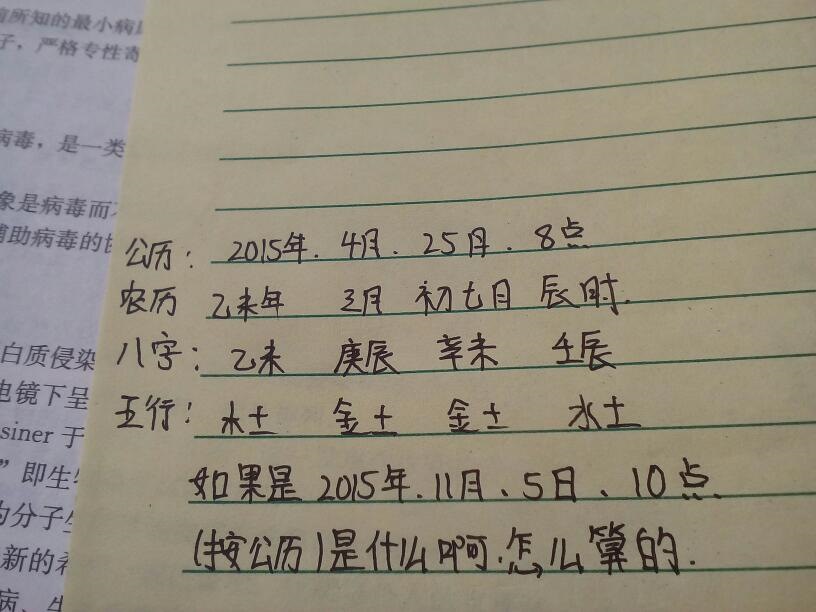 前所知的最小病
子，严格专性寄
病毒，是一类
象是病毒而
辅助病毒的
白质侵染
电镜下呈
siner 于
”即生
为分子生
新的希
病、生
公历：2015年.4月.25日.8点
农历 乙未年 三月 初七日 辰时.
八字：乙未 庚辰 辛未 壬辰
五行：水土 金土 金土 水土
如果是 2015年.11月、5日、10点.
(按公历)是什么啊.怎么算的.